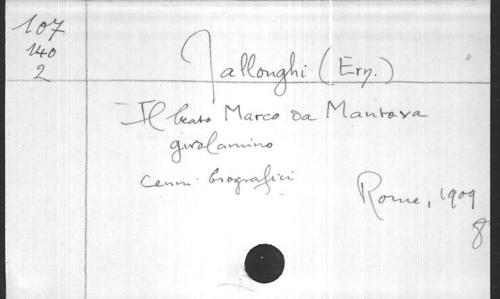 107
140
2
Jallonghi (Ern.)
Il beato Marco da Mantova
girolamino
cenni biografici
Rome, 1909
8